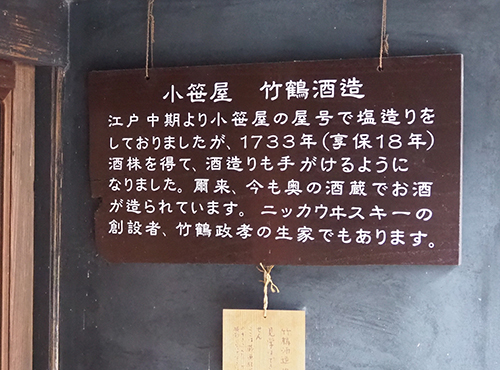 小笹屋 竹鶴酒造
江戸中期より小笹屋の屋号で塩造りを
しておりましたが、1733年(享保18年)
酒株を得て、酒造りも手がけるように
なりました。爾来、今も奥の酒蔵でお酒
が造られています。ニッカウヰスキーの
創設者、竹鶴政孝の生家でもあります。
竹鶴酒造